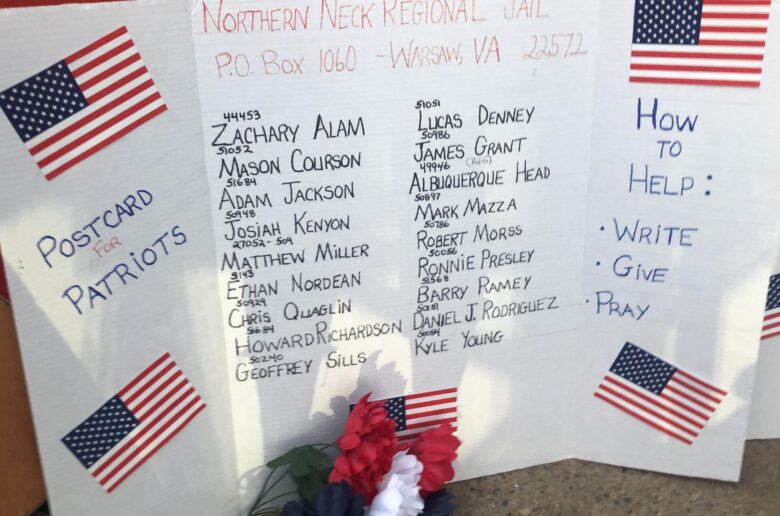 NORTHERN NECK REGIONAL JAIL
P.O. BOX 1060 - WARSAW, VA 22572
POSTCARD
FOR
PATRIOTS
44453
ZACHARY ALAM
51052
MASON COURSON
51684
ADAM JACKSON
50948
JOSIAH KENYON
27052-509
MATTHEW MILLER
51143
ETHAN NORDEAN
50929
CHRIS QUAGLIN
51684
HOWARD RICHARDSON
50240
GEOFFREY SILLS
51051
LUCAS DENNEY
50986
JAMES GRANT
49946
ALBUQUERQUE HEAD
50897
MARK MAZZA
50786
ROBERT MORSS
50056
RONNIE PRESLEY
51568
BARRY RAMEY
50151
DANIEL J. RODRIGUEZ
50054
KYLE YOUNG
HOW
TO
HELP:
· WRITE
· GIVE
· PRAY